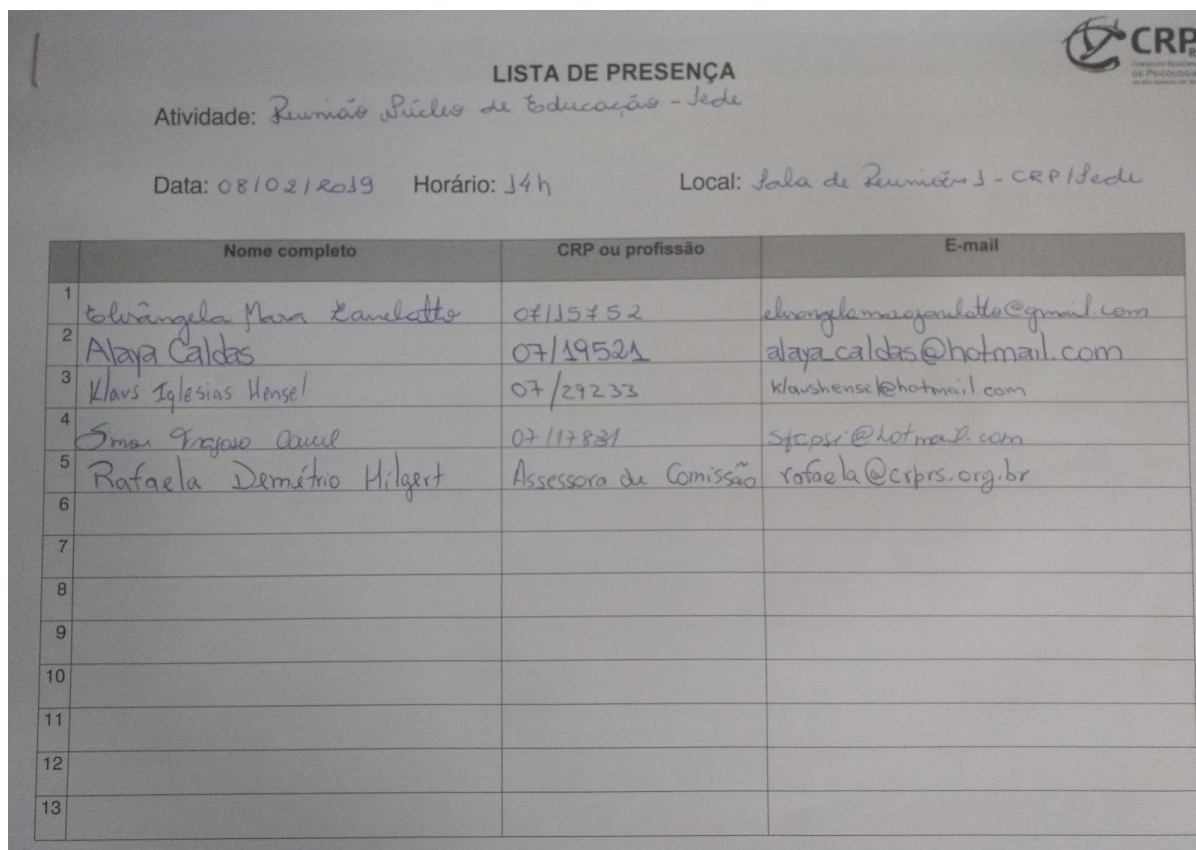 CRP
LISTA DE PRESENÇA
Atividade: Reunião Núcleo de Educação - Sede
Data: 08/02/2019 Horário: 14h Local: Sala de Reuniões 1 - CRP/Sede
Nome completo CRP ou profissão E-mail
1 Elisângela Mara Zanelatto 07/15752
2 Alaya Caldas 07/19521 alaya_caldas@hotmail.com
3 Klaus Iglesias Hensel 07/29233 klaushensel@hotmail.com
4 Fragoso 07/17831 sfcpsi@hotmail.com
5 Rafaela Demétrio Hilgert Assessora de Comissão rafaela@crprs.org.br
6
7
8
9
10
11
12
13